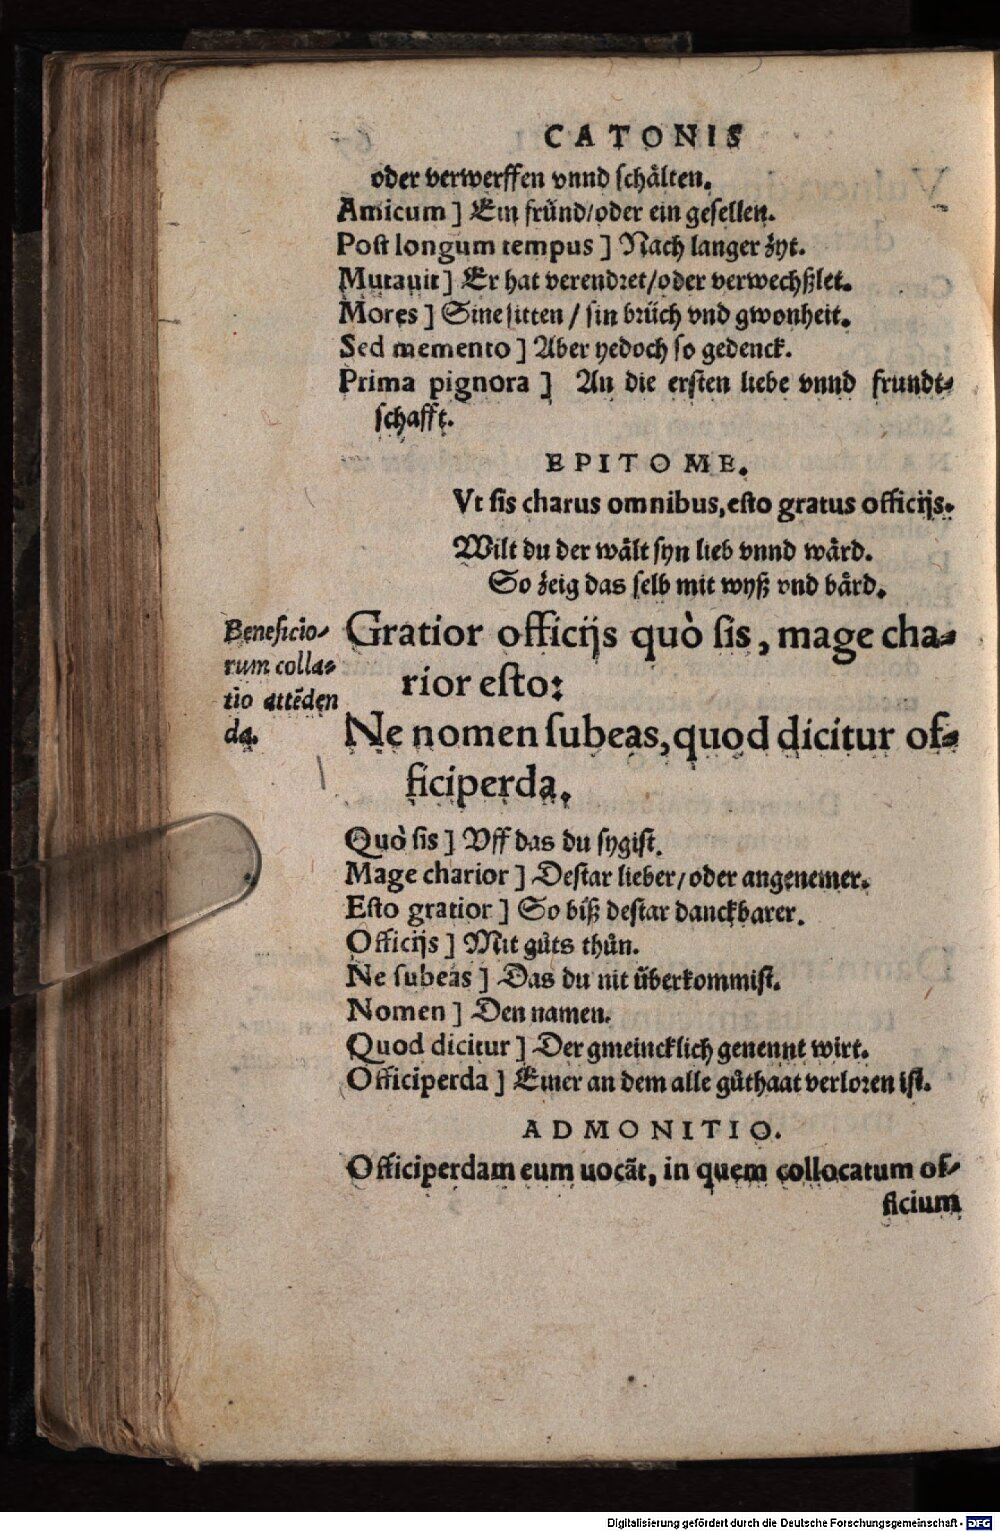 CATONIS
oder verwerffen vnnd schälten.
Amicum ] Ein fründ/oder ein gesellen.
Post longum tempus ] Nach langer zyt.
Mutauit ] Er hat verendret/oder verwechßlet.
Mores ] Sine sitten / sin brüch vnd gwonheit.
Sed memento ] Aber yedoch so gedenck.
Prima pignora ] An die ersten liebe vnnd frundt-
schafft.
EPITOME.
Vt sis charus omnibus, esto gratus officijs.
Wilt du der wält syn lieb vnnd wärd.
So zeig das selb mit wyß vnd bärd.
Beneficio-
rum colla-
tio attẽden
da.
Gratior officijs quò sis, mage cha-
rior esto:
Ne nomen subeas, quod dicitur of-
ficiperda.
Quò sis ] Vff das du sygist.
Mage charior ] Destar lieber/oder angenemer.
Esto gratior ] So biß destar danckbarer.
Officijs ] Mit gůts thůn.
Ne subeas ] Das du nit überkommist.
Nomen ] Den namen.
Quod dicitur ] Der gmeincklich genennt wirt.
Officiperda ] Einer an dem alle gůthaat verloren ist.
ADMONITIO.
Officiperdam eum uocãt, in quem collocatum of-
ficium
Digitalisierung gefördert durch die Deutsche Forschungsgemeinschaft - DFG